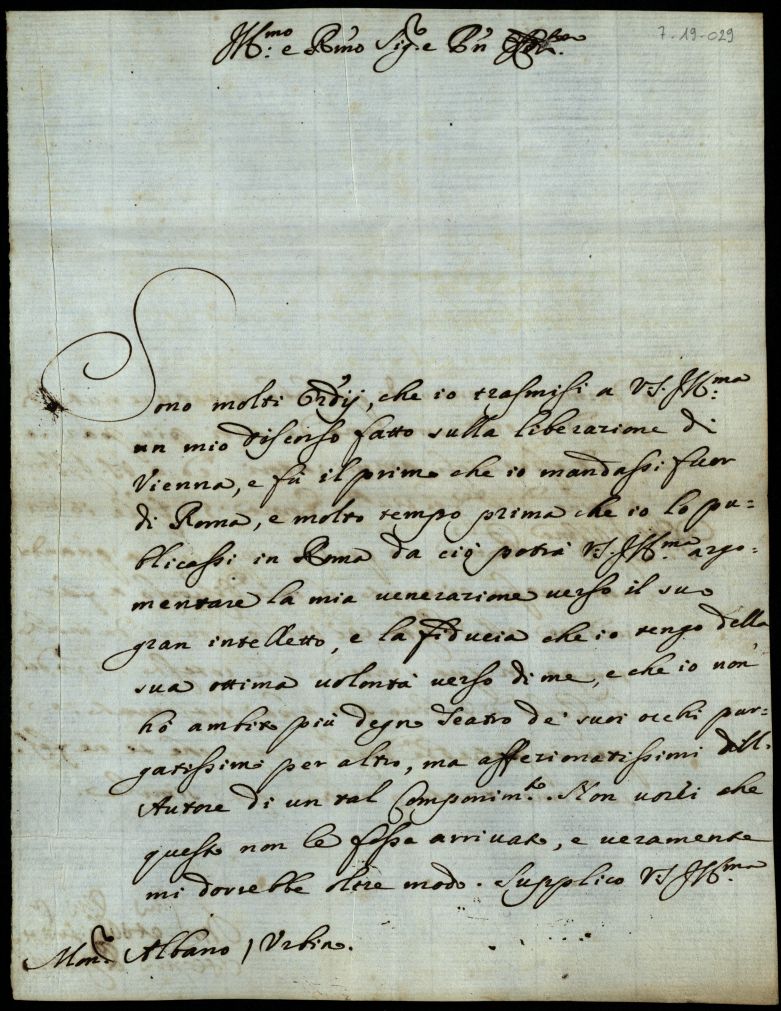 7-19-029
Ill:mo e R'mo Sig.e P'n
Sono molti Ord'ij, che io trasmisi a V.S. Ill:ma
un mio discorso fatto sulla liberazione di
Vienna, e fú il primo che io mandassi fuor
di Roma, e molto tempo prima che io lo pu=
blicassi in Roma da ciò potrà V.S. Ill:ma argo=
mentare la mia venerazione verso il suo
gran intelletto, e la fiducia che io tengo della
sua ottima volontà verso di me, e che io non
hò ambito più degno Teatro de' suoi occhi pur=
gatissimi per altro, ma affezionatissimi dell'
Autore di un tal Componim.to. Non vorli che
questo non le fosse arrivato, e veramente
mi dorrebbe oltre modo. Supplico V.S. Ill:ma
Mon.r Albano / Urbino.